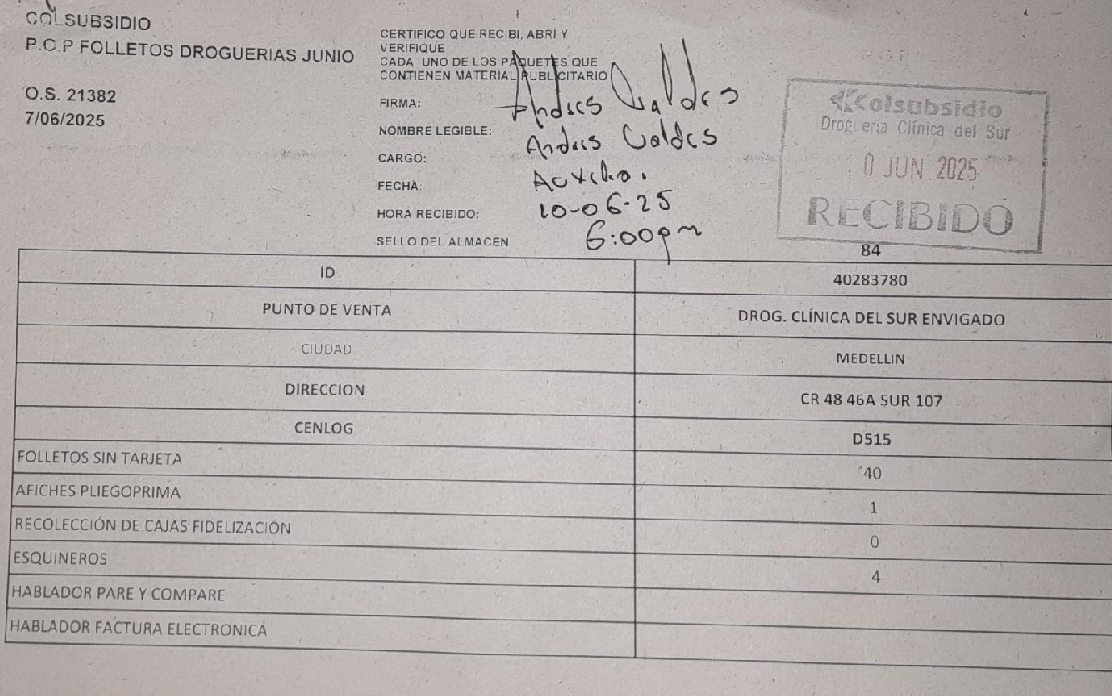 COLSUBSIDIO
P.O.P FOLLETOS DROGUERIAS JUNIO
O.S. 21382
7/06/2025
CERTIFICO QUE RECIBI, ABRI Y
VERIFIQUE
CADA UNO DE LOS PAQUETES QUE
CONTIENEN MATERIAL PUBLICITARIO
FIRMA: Andres Valdes
NOMBRE LEGIBLE: Andres Valdes
CARGO: Auxiliar
FECHA: 10-06-25
HORA RECIBIDO: 6:00pm
SELLO DEL ALMACEN
Colsubsidio
Droguería Clínica del Sur
0 JUN 2025
RECIBIDO
84
ID 40283780
PUNTO DE VENTA DROG. CLÍNICA DEL SUR ENVIGADO
CIUDAD MEDELLIN
DIRECCION CR 48 46A SUR 107
CENLOG D515
FOLLETOS SIN TARJETA 40
AFICHES PLIEGOPRIMA 1
RECOLECCIÓN DE CAJAS FIDELIZACIÓN 0
ESQUINEROS 4
HABLADOR PARE Y COMPARE
HABLADOR FACTURA ELECTRONICA